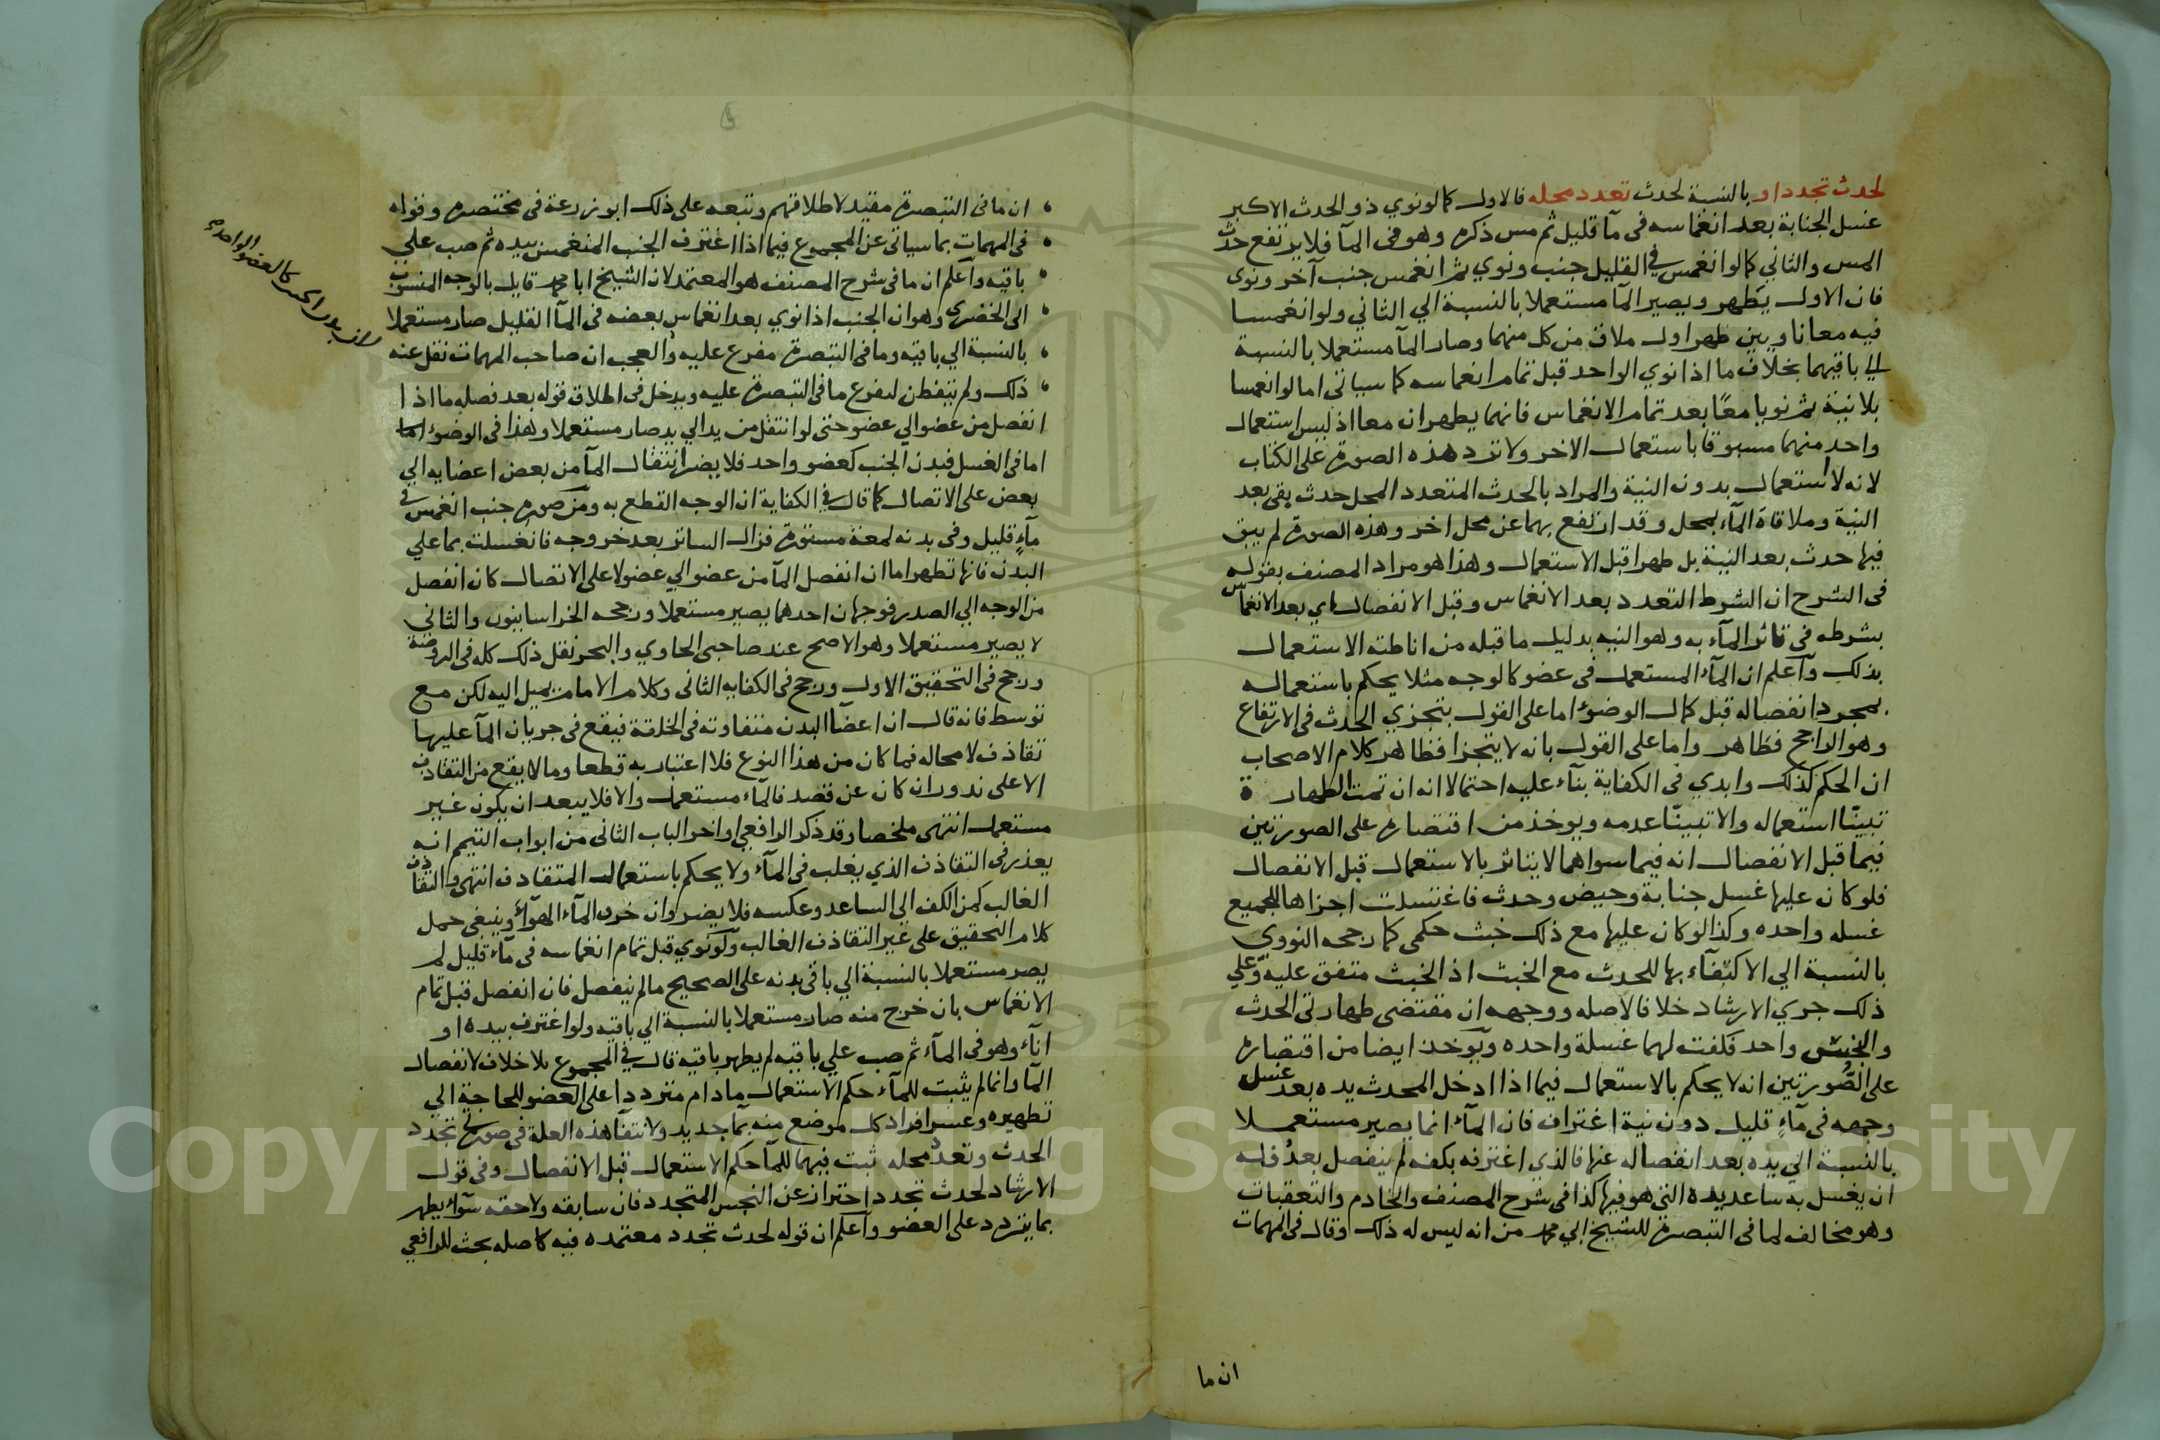 لحدث تجدد او بالنسبة لحدث تعدد محله فالاول كما لو نوي ذو الحدث الاكبر
غسل الجنابة بعد انغماسه في مآ قليل ثم مس ذكره وهو في المآ فلا يرتفع حدث
المس والثاني كما لو انغمس في القليل جنب ونوي ثم انغمس جنب آخر ونوى
فان الاول يطهر ويصير المآ مستعملا بالنسبة الي الثاني ولو انغمسا
فيه معا ناويين طهر اول ملاق من كل منهما وصار المآ مستعملا بالنسبة
الي باقيهما بخلاف ما اذا نوي الواحد قبل تمام انغماسه كما سياتى اما لو انغمسا
بلا نية ثم نويا معًا بعد تمام الانغماس فانهما يطهران معا اذ ليس استعمال
واحد منهما مسبوقا باستعمال الاخر ولا ترد هذه الصورة على الكتاب
لانه لا استعمال بدون النية والمراد بالحدث المتعدد المحل حدث بقى بعد
النية وملاقاة المآء لمحل وقد ارتفع بهما عن محل اخر وهذه الصورة لم يبق
فيها حدث بعد النية بل طهرا قبل الاستعمال وهذا هو مراد المصنف بقوله
في الشرح ان الشرط التعدد بعد الانغماس وقبل الانفصال اي بعد الانغماس
بشرطه في تاثر المآء به وهو النيه بدليل ما قبله من اناطته الاستعمال
بذلك وآعلم ان المآء المستعمل في عضو كالوجه مثلا يحكم باستعماله
بمجرد انفصاله قبل كمال الوضوء اما على القول بتجزي الحدث في الارتفاع
وهو الراجح فظاهر واما على القول بانه لا يتجزا فظاهر كلام الاصحاب
ان الحكم كذلك وابدي في الكفاية بنآء عليه احتمالا انه ان تمت الطهارة
تبينّا استعماله والا تبينّا عدمه ويوخذ من اقتصاره على الصورتين
فيما قبل الانفصال انه فيما سواهما لا يتاثر بالاستعمال قبل الانفصال
فلو كان عليها غسل جنابة وحيض وحدث فاغتسلت اجزاها للجميع
غسله واحده وكذا لو كان عليها مع ذلك خبث حكمي كما رجحه النووي
بالنسبة الي الاكتفآء بها للحدث مع الخبث اذ الخبث متفق عليه وعلي
ذلك جري الارشاد خلافا لاصله ووجهه ان مقتضى طهارتى الحدث
والخبث واحد فكفت لهما غسلة واحده ويوخذ ايضا من اقتصاره
على الصُّورتين انه لا يحكم بالاستعمال فيما اذا ادخل المحدث يده بعد غسل
وجهه في مآءٍ قليل دون نية اغتراف فان المآء انما يصير مستعملا
بالنسبة الي يده بعد انفصاله عنها فالذي اغترفه بكفه لم ينفصل بعدُ فله
ان يغسل به ساعد يده التي هو فيها كذا في شرح المصنف والخادم والتعقبات
وهو مخالف لما في التبصرة للشيخ ابي محمد من انه ليس له ذلك وقال في المهمات
ان ما
ان ما فى التبصرة مقيد لاطلاقهم وتبعه على ذلك ابو زرعة في مختصره وقواه
في المهمات بما سياتى عن المجموع فيما اذا اغترف الجنب المنغمس بيده ثم صب علي
باقيه وآعلم ان ما في شرح المصنف هو المعتمد لان الشيخ ابا محمد قايل بالوجه المنسوب
الى الخضرى وهو ان الجنب اذا نوي بعد انغماس بعضه في المآ القليل صار مستعملا
بالنسبة الي باقيه وما في التبصرة مفرع عليه والعجب ان صاحب المهمات نقل عنه
ذلك ولم يتفطن لتفرع ما في التبصرة عليه ويدخل في اطلاق قوله بعد فصله ما اذا
انفصل من عضو الي عضو حتى لو انتقل من يد الي يد صار مستعملا وهذا في الوضوء
اما في الغسل فبدن الجنب كعضو واحد فلا يضر انتقال المآ من بعض اعضايه الي
بعض على الاتصال كما قال في الكفاية ان الوجه القطع به ومن صوره جنب انغمس في
مآءٍ قليل وفي بدنه لمعة مستورة فزال الساتر بعد خروجه فانغسلت بما علي
البدن فانها تطهر اما ان انفصل المآ من عضو الي عضو لا على الاتصال كان انفصل
من الوجه الي الصدر فوجهان احدهما يصير مستعملا ورجحه الخراسانيون والثاني
لا يصير مستعملا وهو الاصح عند صاحبي الحاوي والبحر نقل ذلك كله في الروضة
ورجح في التحقيق الاول ورجح في الكفايه الثانى وكلام الامام يميل اليه لكن مع
توسط فانه قال ان اعضآ البدن متفاوته في الخلقة فيقع في جريان المآ عليها
تقاذف لا محاله فما كان من هذا النوع فلا اعتبار به قطعا وما لا يقع من التقاذف
الا على ندور ان كان عن قصد فالمآء مستعمل والا فلا يبعد ان يكون غير
مستعمل انتهى ملخصا وقد ذكر الرافعي اواخر الباب الثانى من ابواب التيمم انه
يعذر في التقاذف الذي يغلب في المآء ولا يحكم باستعمال المتقاذف انتهى والتقاذف
الغالب كمن الكف الى الساعد وعكسه فلا يضر وان خرق المآء الهوآء وينبغي حمل
كلام التحقيق على غير التقاذف الغالب ولو نوي قبل تمام انغماسه في مآء قليل لم
يصر مستعملا بالنسبة الي باقي بدنه على الصحيح ما لم ينفصل فان انفصل قبل تمام
الانغماس بان خرج منه صار مستعملا بالنسبة الي باقيه ولو اغترف بيده او
انآء وهو في المآء ثم صب علي باقيه لم يطهر باقيه قال في المجموع بلا خلاف لانفصال
المآ وانما لم يثبت للمآء حكم الاستعمال ما دام مترددا على العضو للحاجة الي
تطهيره وعسر افراد كل موضع منه بمآ جديد ولانتفآ هذه العلة في صورتي تجدد
الحدث وتعدد محله ثبت فيهما للمآ حكم الاستعمال قبل الانفصال وفي قول
الارشاد لحدث تجدد احتراز عن النجس المتجدد فان سابقه ولاحقه سوآء يطهر
بما يتردد على العضو وآعلم ان قوله لحدث تجدد معتمده فيه كاصله بحث للرافعي
لان بدن الجنب كالعضو الواحد
Copyright © King Saud University
1957